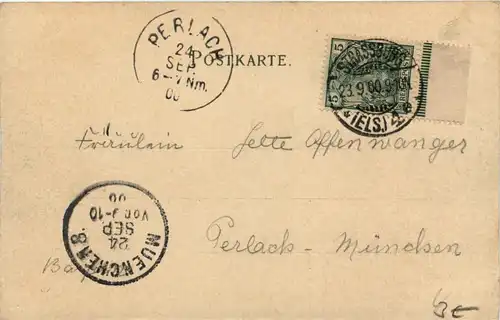 PERLACH
24
SEP
6-7 Nm.
00
POSTKARTE.
5
STRASSBURG
23.9.00.9-10
(ELS.) 2
Fräulein Jette Offenwanger
Perlach - München
MUENCHEN 8
24
SEP
VOR 9-10
00